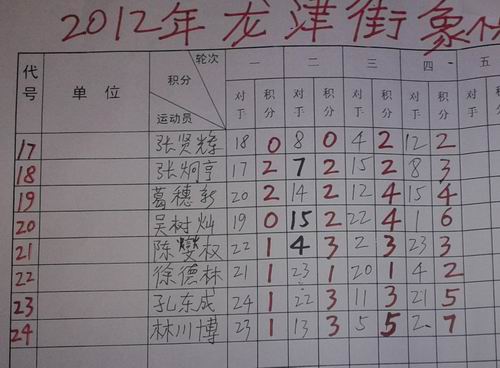 2012年龙津街象
代号 单位 轮次 积分 运动员 一 二 三 四 五
对于 积分 对于 积分 对于 积分 对于 积分 对于
17 张贤辉 18 0 8 0 4 2 12 2
18 张炯亨 17 2 7 2 15 2 8 3
19 葛穗新 20 2 14 2 12 4 15 4
20 吴树灿 19 0 15 2 22 4 1 6
21 陈燮权 22 1 4 3 2 3 23 3
22 徐德林 21 1 23 1 20 1 4 2
23 孔东成 24 1 22 3 11 3 21 5
24 林川博 23 1 13 3 5 5 2 7